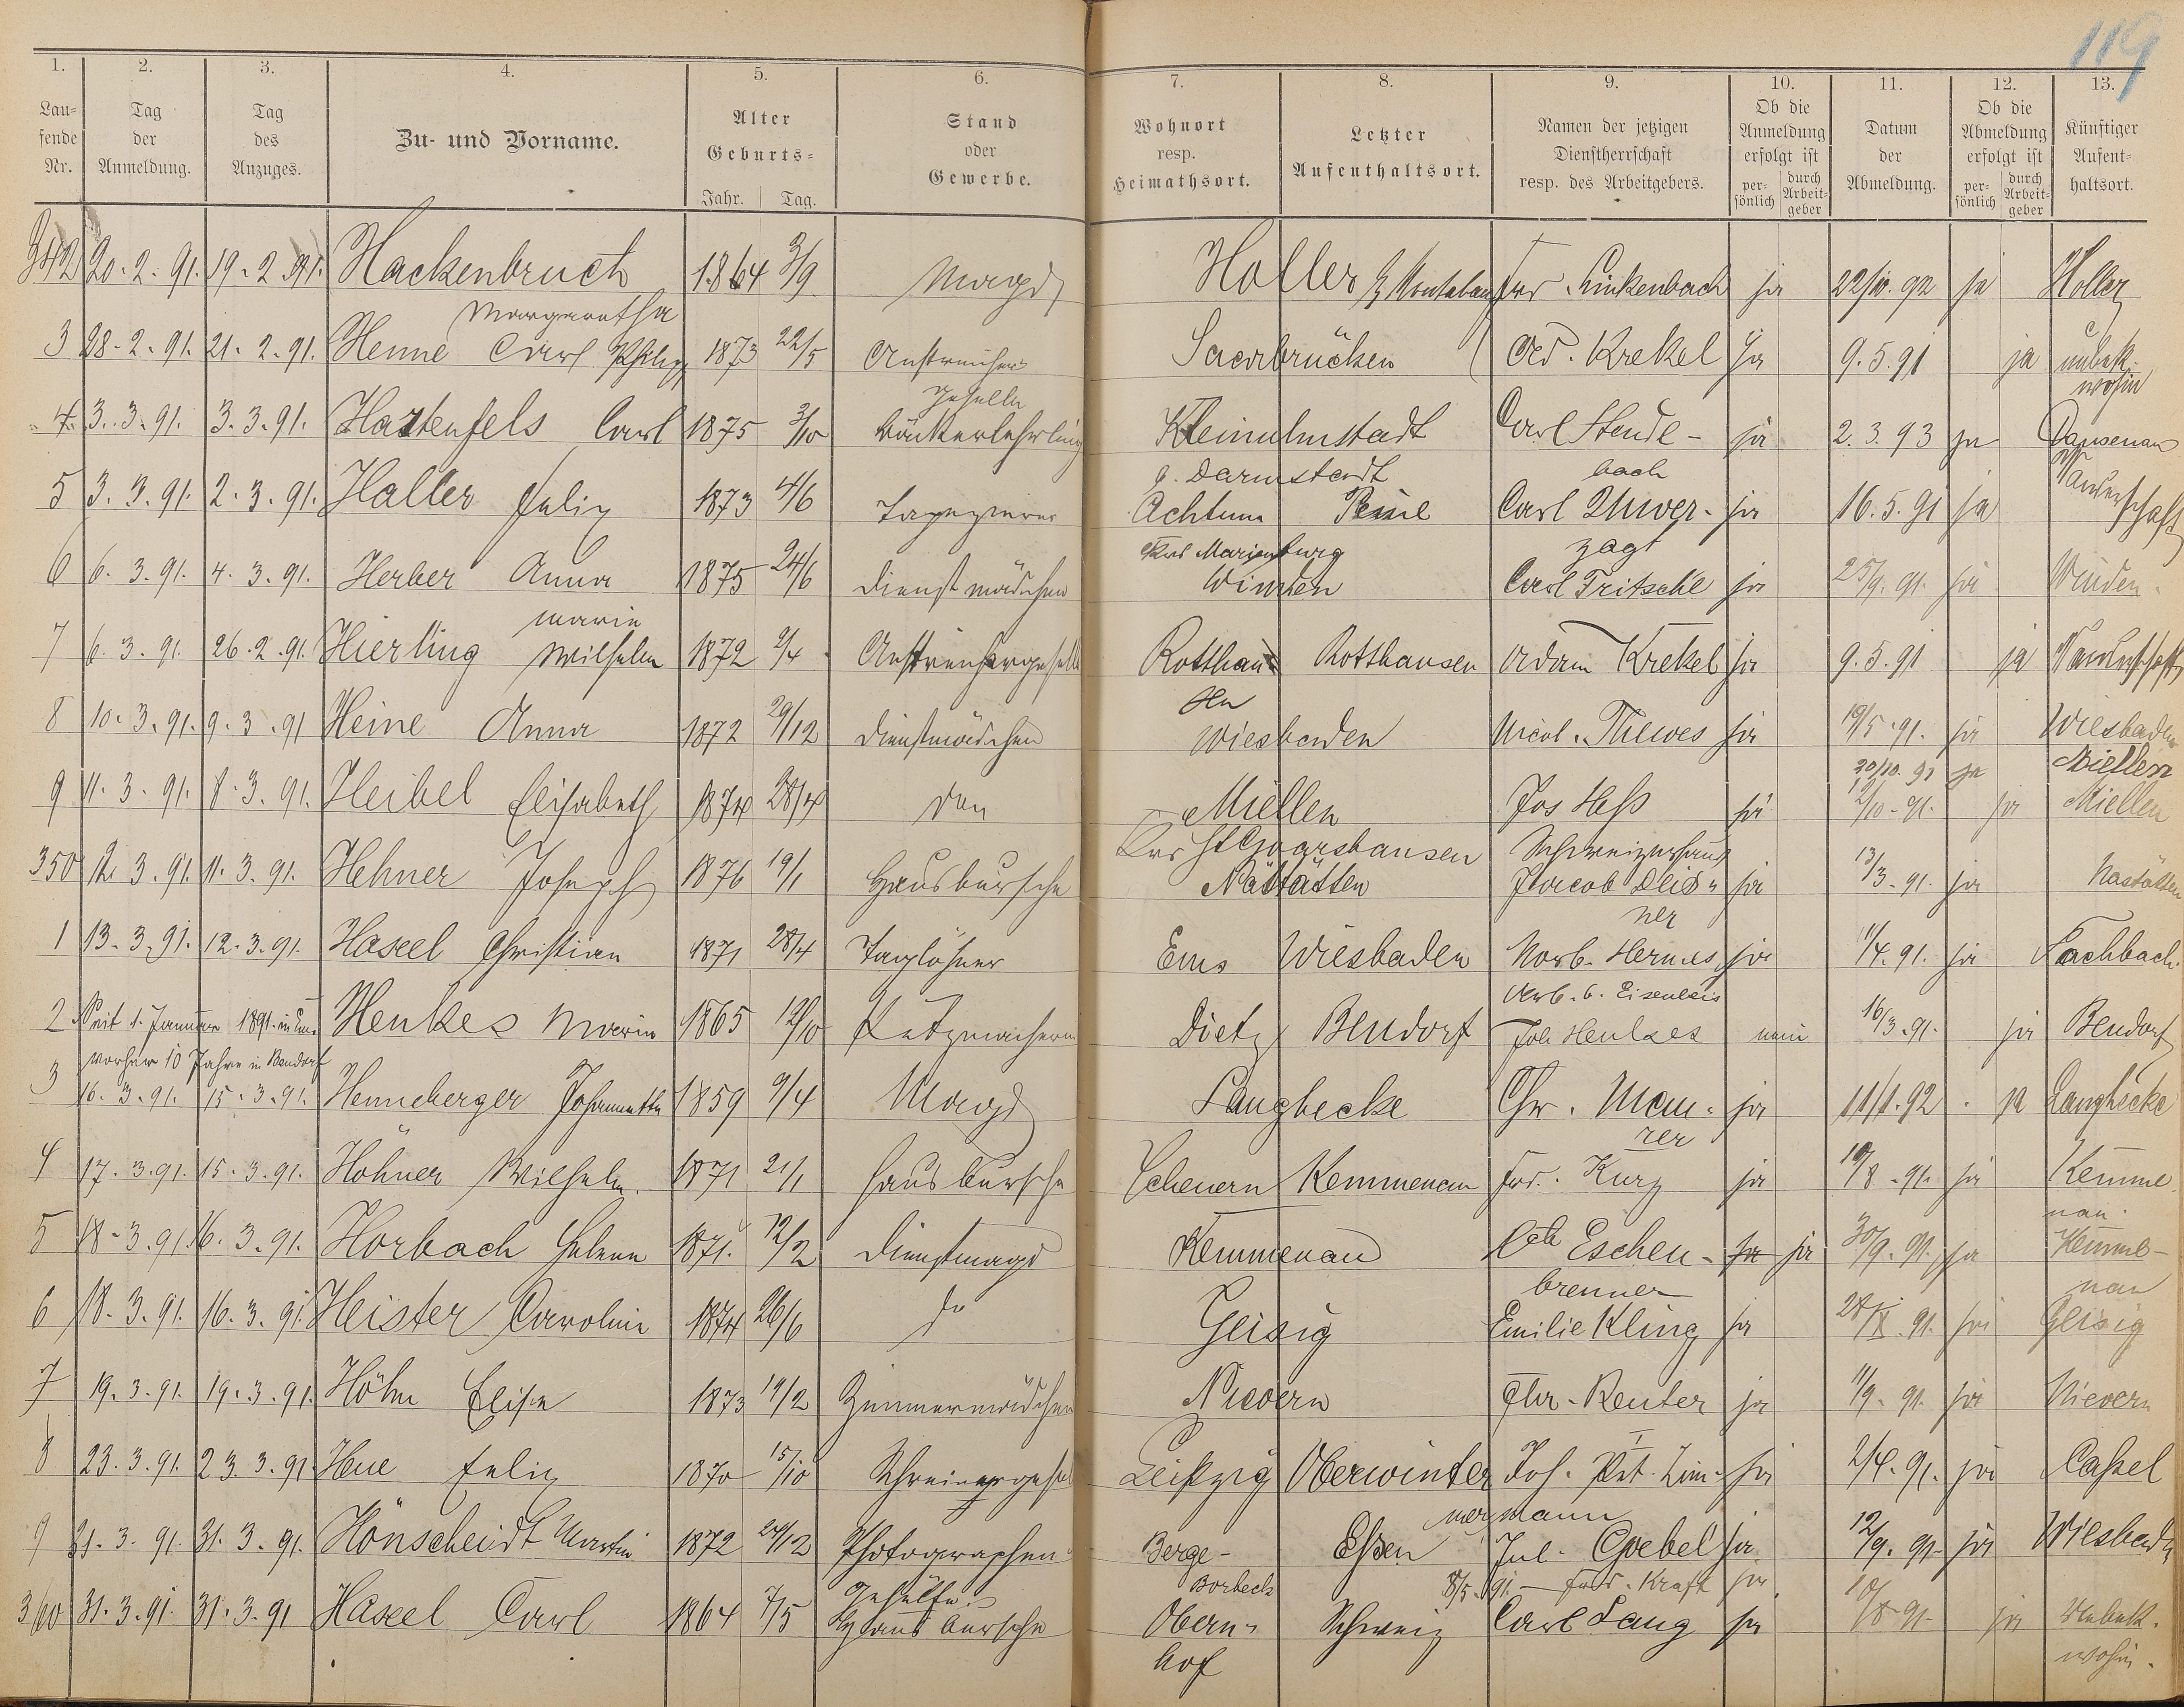 119
1. 2. 3. 4. 5. 6. 7. 8. 9. 10. 11. 12. 13.
Lau=
fende
Nr.
Tag
der
Anmeldung.
Tag
des
Anzuges.
Zu- und Vorname.
Alter
Geburts=
Jahr. Tag.
Stand
oder
Gewerbe.
Wohnort
resp.
Heimathsort.
Letzter
Aufenthaltsort.
Namen der jetzigen
Dienstherrschaft
resp. des Arbeitgebers.
Ob die
Anmeldung
erfolgt ist
per-
sönlich
durch
Arbeit-
geber
Datum
der
Abmeldung.
Ob die
Abmeldung
erfolgt ist
per-
sönlich
durch
Arbeit-
geber
Künftiger
Aufent-
haltsort.
342 20.2.91. 19.2.91. Hackenbruch 1864 3/9 Magd Holler Linkenbach ja 22/10.92 ja Holler
Margaretha
3 28.2.91. 21.2.91. Henne Carl Philipp 1873 22/5 Anstreicher Saarbrücken Ad. Krekel ja 9.5.91 ja unbek.
Geselle wohin
4 3.3.91. 3.3.91. Hartenfels Carl 1875 3/10 Bäckerlehrling Kleinumstadt Carl Steude- ja 2.3.93 ja Dausenau
b. Darmstadt bach
5 3.3.91. 2.3.91. Haller Felix 1873 4/6 Tapezierer Achtum Peine Carl Unver- ja 16.5.91 ja Wanderschaft
Krs Marienburg zagt
6 6.3.91. 4.3.91. Herber Anna 1875 24/6 Dienstmädchen Winden Carl Fritsche ja 25/9.91. ja Winden.
Marie
7 6.3.91. 26.2.91. Hierling Wilhelm 1872 2/4 Anstreichergeselle Rotthau Rotthausen Adam Krekel ja 9.5.91 ja Wanderschaft
sen
8 10.3.91. 9.3.91 Heine Anna 1872 29/12 Dienstmädchen Wiesbaden Nicol. Thewes ja 19/5.91. ja Wiesbaden
30/10.91 ja Miellen
9 11.3.91. 8.3.91. Heibel Elisabeth 1874 28/4 Miellen Jos Heß ja 2/10-91. ja Miellen
Krs St Goarshausen Schweizerhaus
350 12.3.91. 11.3.91. Hehner Joseph 1876 19/1 Hausbursche Nastätten Jacob ja 13/3.91. ja Nastätten
ner
1 13.3.91. 12.3.91. Haxel Christian 1871 28/4 Taglöhner Ems Wiesbaden Norb. Hermes ja 11/4.91. ja Fachbach.
Arb. b. Eisenbeis
2 Seit 1. Januar 1891. in Ems Henkes Maria 1865 12/10 Putzmacherin Dietz Bendorf Joh Henkes nein 16/3.91. ja Bendorf
vorher 10 Jahre in Bendorf
3 16.3.91. 15.3.91. Henneberger Johannette 1859 9/4 Magd Langhecke Chr. Mau- ja 11/1.92 ja Langhecke
rer
4 17.3.91. 15.3.91. Höhner Wilhelm. 1871 21/1 Hausbursche Scheuern Kemmenau Kurz ja 10/8.91. ja Kemme
nau.
5 18.3.91. 16.3.91. Horbach Helene 1871. 12/2 Dienstmagd Kemmenau Eschen- ja ja 30/9.91. ja Kemme-
brenner nau
6 18.3.91. 16.3.91. Heister Caroline 1874 26/6 do Geisig Emilie Kling ja 91. ja Geisig
7 19.3.91. 19.3.91. Höhn Elise 1873 19/2 Zimmermädchen Nievern Chr. Reuter ja 11/9.91. ja Nievern
8 23.3.91. 23.3.91. Heue Felix 1870 15/10 Schreinergesel Leipzig Oberwinter Joh. Pet. Zim- ja 2/4.91. ja Cassel
mermann
9 31.3.91. 31.3.91. Hönscheidt Martin 1872 24/12 Photographen Berge- Eßen Jul. Goebel ja 12/9.91. ja Wiesbaden
Gehülfe Borbeck 8/5.91. Kraft ja
360 31.3.91. 31.3.91 Haxel Carl 1864 7/5 Hausbursche Obern- Schweiz Carl Lang ja 10/8-91- ja unbek.
hof wohin.